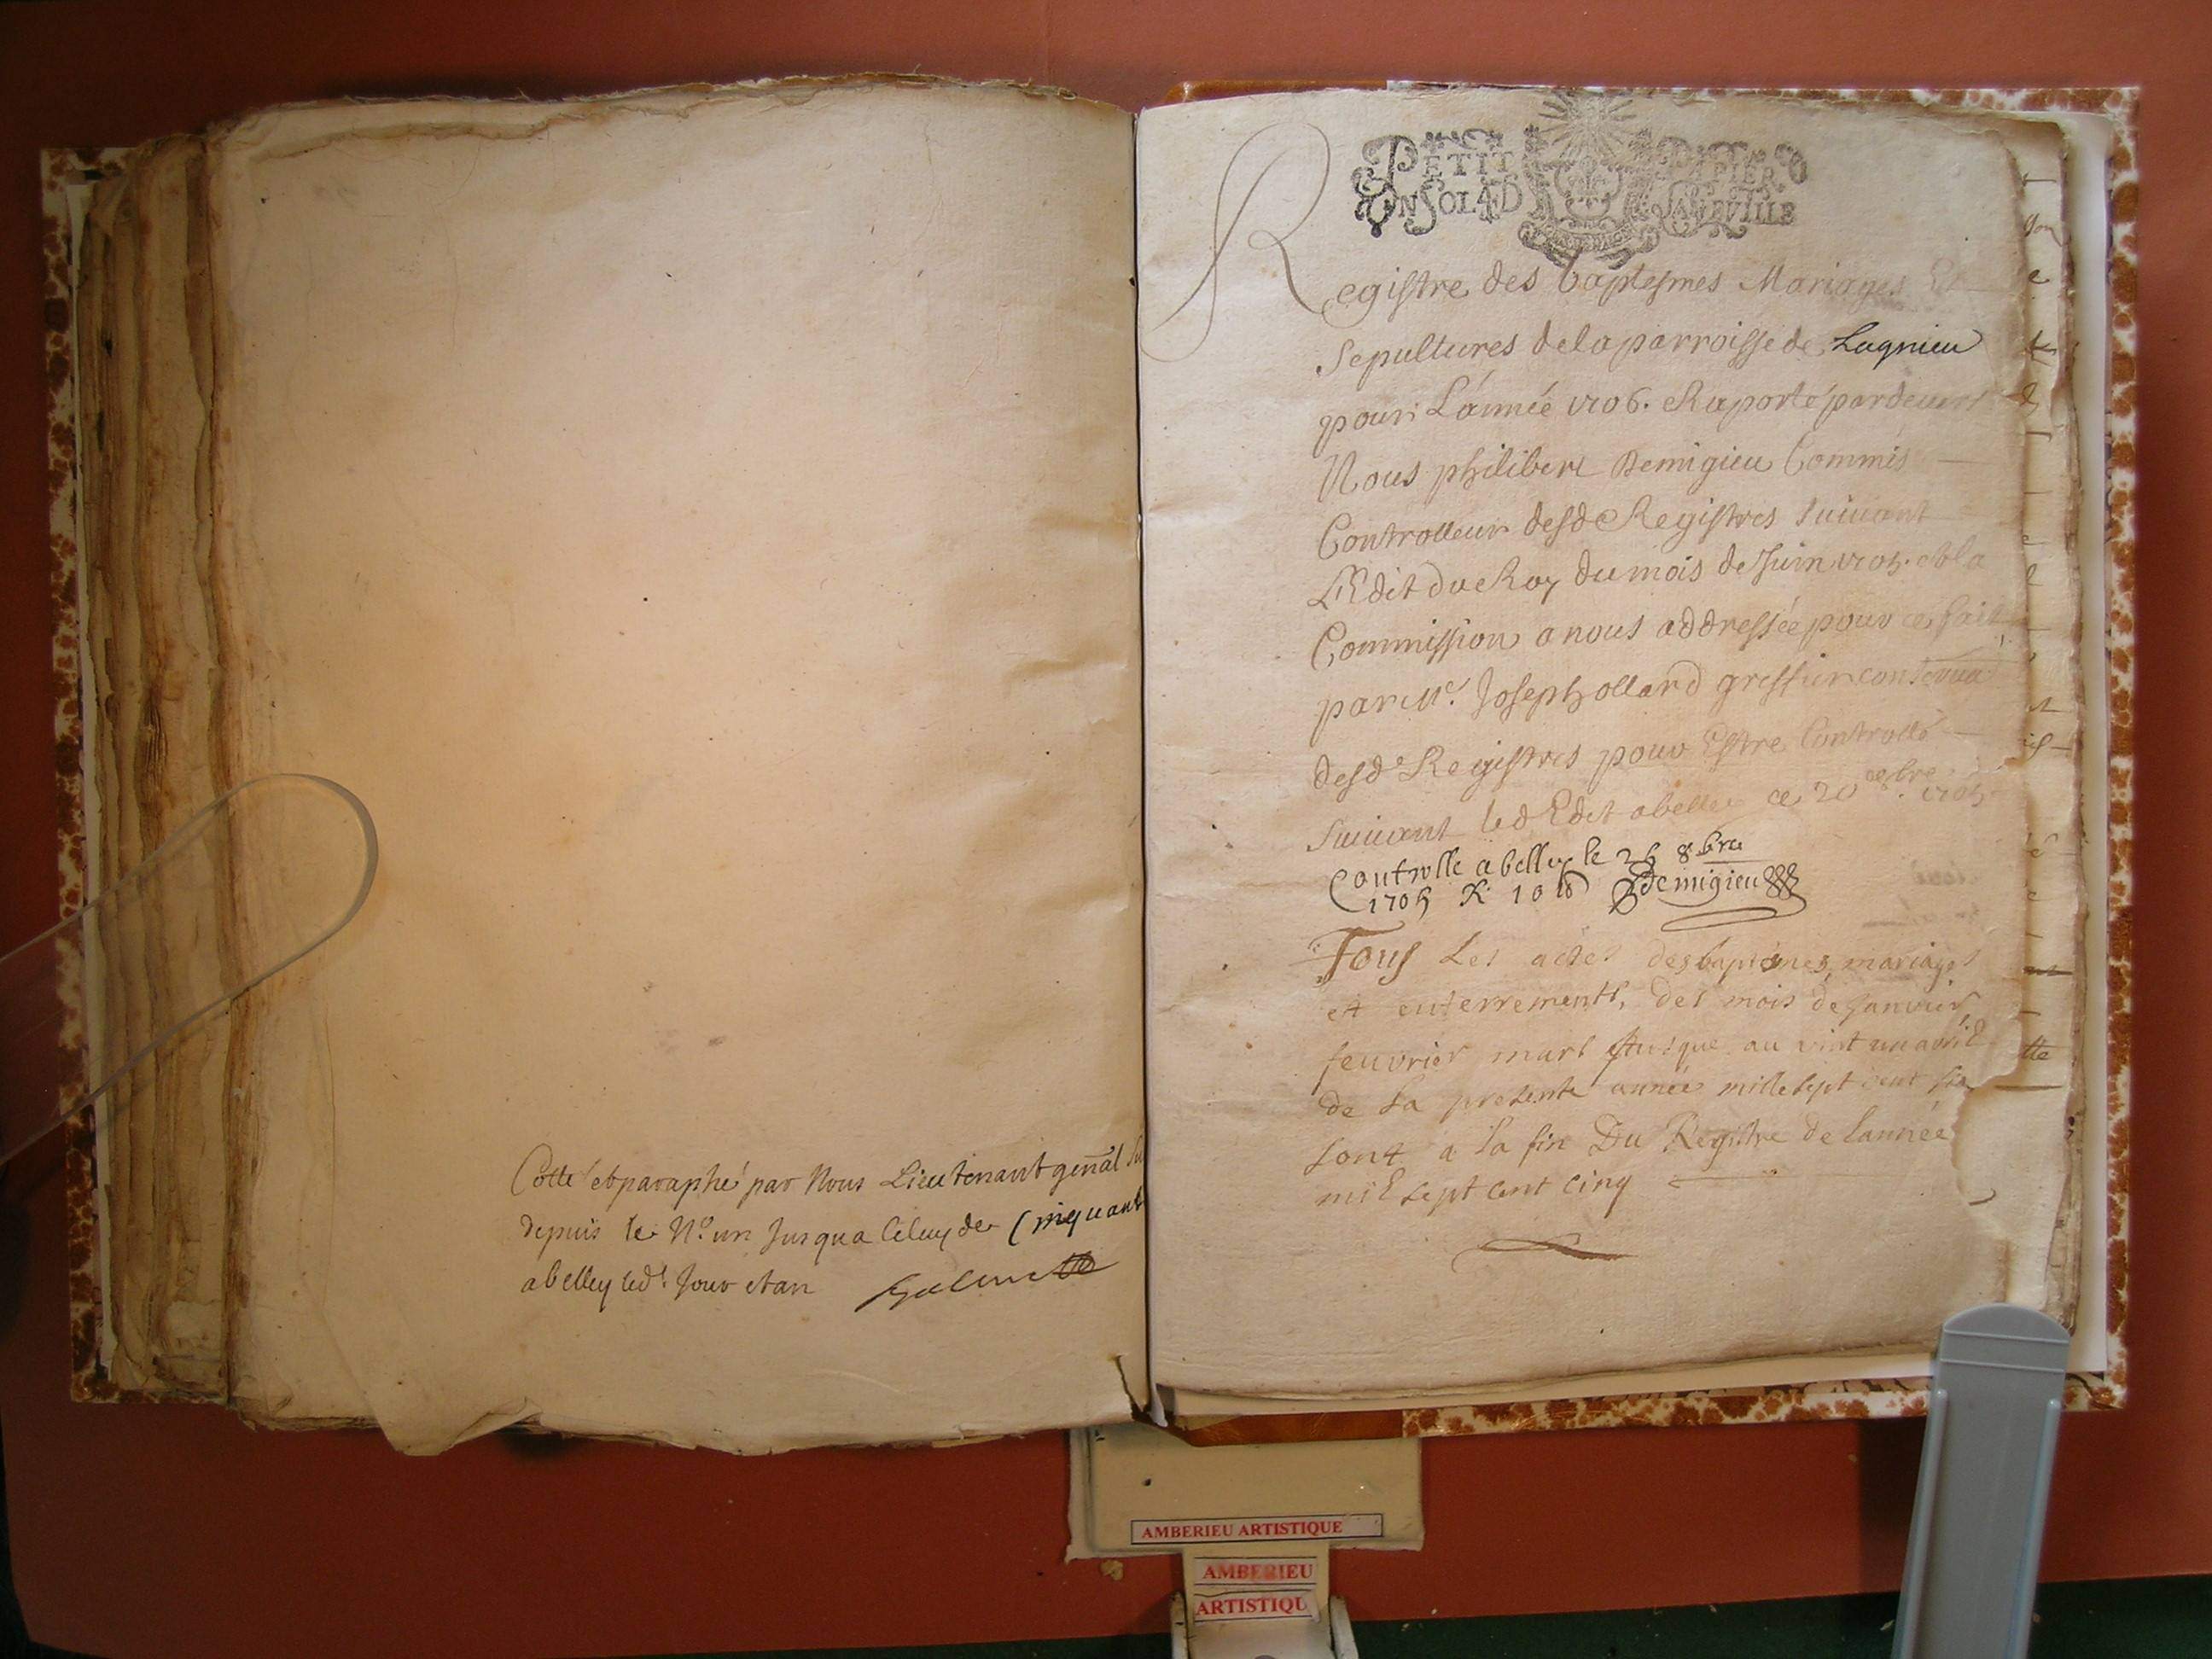 Cotté et paraphé par Nous Lieutenant genal
depuis le No. un Jusqua Celuy de Cinquant
a belley led. Jour et an
PETIT PAPIER
UN SOL 4 D LA FEUILLE
Registre des baptesmes Mariages Et
Sepultures de la parroisse de Lagnieu
pour L'année 1706. Raporté pardevant
Nous philibert Demigieu Commis
Controlleur desd Registres suiuant
L'Edit du Roy du mois de Juin 1705. et la
Commission a nous addressée pour ce fait
par Me. Joseph ollard greffier conservat
desd Registres pour Estre Controllé
suiuant led Edit a belley ce 20 8bre. 1705
Controlle a belley le 26 8bre
1705 R 10 Demigieu
Tous Les actes des baptemes, mariages
et enterrements, des mois de Janvier,
feuvrier mars Jusque au vint un avril
de La presente année mille sept cent six
sont a la fin Du Registre de lannée
mil sept cent cinq
AMBERIEU ARTISTIQUE
AMBERIEU
ARTISTIQU